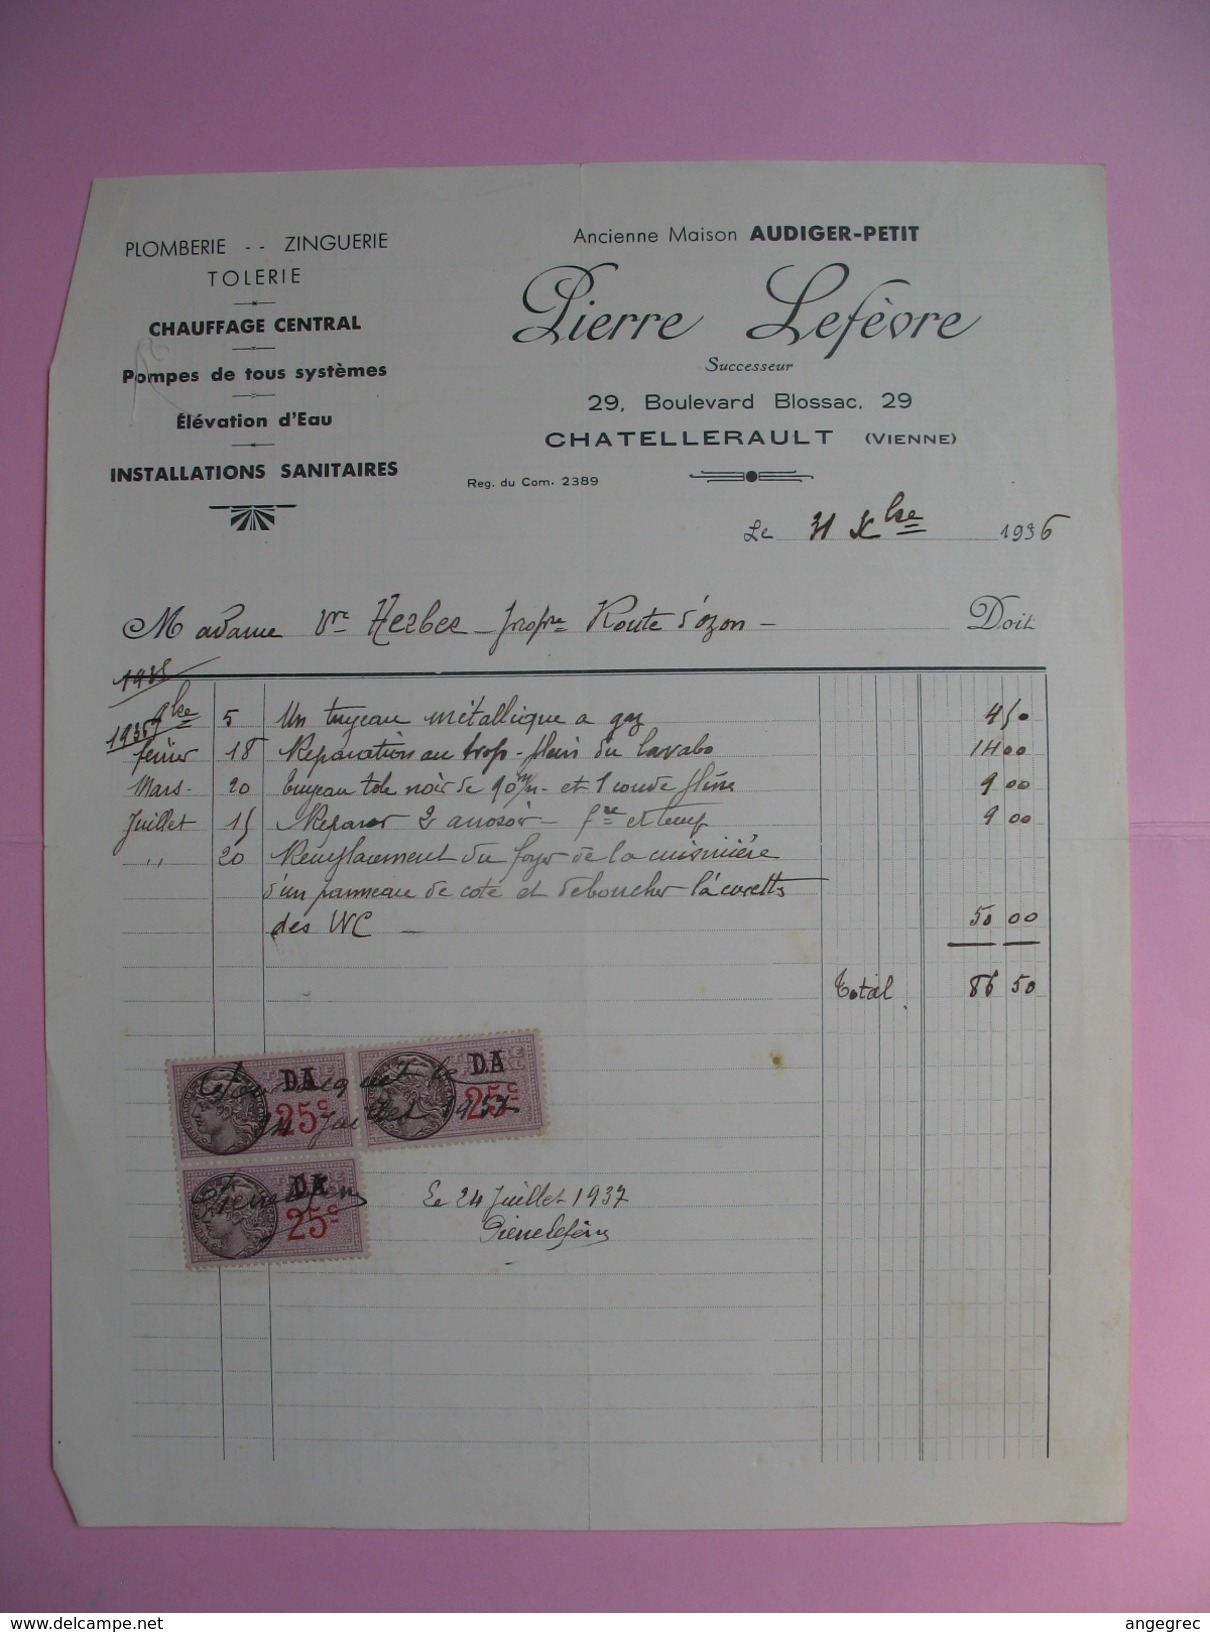 PLOMBERIE -- ZINGUERIE
TOLERIE
CHAUFFAGE CENTRAL
Pompes de tous systèmes
Élévation d'Eau
INSTALLATIONS SANITAIRES
Ancienne Maison AUDIGER-PETIT
Pierre Lefèvre
Successeur
29, Boulevard Blossac, 29
CHATELLERAULT (VIENNE)
Reg. du Com. 2389
Le 31 Xbre 1936
Madame Vve Herber propre Route d'ozon - Doit
1935
9bre 5 Un tuyeau métallique a gaz 4 50
1936
fevrier 18 Reparation au trop-plein du lavabo 14 00
Mars - 20 tuyeau tole noir de 90 m/m et 1 coude 9 00
Juillet 15 Reparer 2 arrosoir - fre et temp 9 00
" 20 Remplacement du foyer de la cuisinière
d'un panneau de coté et deboucher la cuvette
des WC - 50 00
Total 86 50
DA
25c
DA
25c
DA
25c
acquet le
24 Juillet 1937
Pierre Lefèvre
Le 24 Juillet 1937
Pierre Lefèvre
www.delcampe.net
angegrec